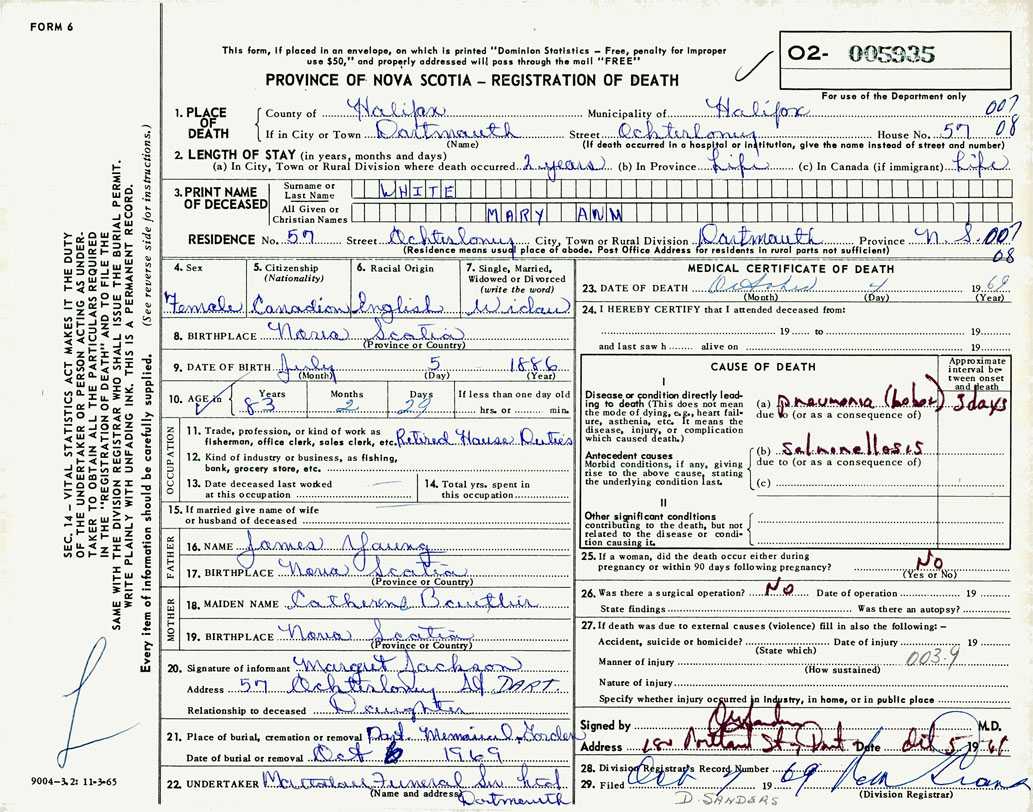 FORM 6
This form, if placed in an envelope, on which is printed "Dominion Statistics – Free, penalty for improper
use $50," and properly addressed will pass through the mail "FREE"
PROVINCE OF NOVA SCOTIA – REGISTRATION OF DEATH
02- 005935
For use of the Department only
1. PLACE OF DEATH
County of Halifax Municipality of Halifax 007
If in City or Town Dartmouth Street Ochterlony House No. 57 08
(Name) (If death occurred in a hospital or institution, give the name instead of street and number)
2. LENGTH OF STAY (in years, months and days)
(a) In City, Town or Rural Division where death occurred 2 years (b) In Province Life (c) In Canada (if immigrant) Life
3. PRINT NAME OF DECEASED
Surname or Last Name WHITE
All Given or Christian Names MARY ANN
RESIDENCE No. 57 Street Ochterlony City, Town or Rural Division Dartmouth Province N.S. 007
(Residence means usual place of abode. Post Office Address for residents in rural parts not sufficient) 08
4. Sex
Female
5. Citizenship
(Nationality)
Canadian
6. Racial Origin
English
7. Single, Married,
Widowed or Divorced
(write the word)
Widow
8. BIRTHPLACE Nova Scotia
(Province or Country)
9. DATE OF BIRTH July 5 1886
(Month) (Day) (Year)
10. AGE in Years Months Days If less than one day old
83 2 29 hrs. or min.
OCCUPATION
11. Trade, profession, or kind of work as
fisherman, office clerk, sales clerk, etc. Retired House Duties
12. Kind of industry or business, as fishing,
bank, grocery store, etc.
13. Date deceased last worked
at this occupation
14. Total yrs. spent in
this occupation
15. If married give name of wife
or husband of deceased
FATHER
16. NAME James Young
17. BIRTHPLACE Nova Scotia
(Province or Country)
MOTHER
18. MAIDEN NAME Catherine
19. BIRTHPLACE Nova Scotia
(Province or Country)
20. Signature of informant Margret Jackson
Address 57 Ochterlony St. DART.
Relationship to deceased Daughter
21. Place of burial, cremation or removal Dart. Memorial Garden
Date of burial or removal Oct 6 1969
22. UNDERTAKER Mattatall Funeral Ser Ltd
(Name and address) Dartmouth
MEDICAL CERTIFICATE OF DEATH
23. DATE OF DEATH October 4 1969
(Month) (Day) (Year)
24. I HEREBY CERTIFY that I attended deceased from:
19 to
19
and last saw h alive on 19
CAUSE OF DEATH
Approximate
interval be-
tween onset
and death
I
Disease or condition directly lead-
ing to death (This does not mean
the mode of dying, e.g., heart fail-
ure, asthenia, etc. It means the
disease, injury, or complication
which caused death.)
(a) pneumonia (lobar) 3 days
due to (or as a consequence of)
Antecedent causes
Morbid conditions, if any, giving
rise to the above cause, stating
the underlying condition last.
(b) salmonellosis
due to (or as a consequence of)
(c)
II
Other significant conditions
contributing to the death, but not
related to the disease or condi-
tion causing it.
25. If a woman, did the death occur either during
pregnancy or within 90 days following pregnancy? No
(Yes or No)
26. Was there a surgical operation? No Date of operation 19
State findings Was there an autopsy?
27. If death was due to external causes (violence) fill in also the following: –
Accident, suicide or homicide? Date of injury 19
(State which)
Manner of injury 003.9
(How sustained)
Nature of injury
Specify whether injury occurred in industry, in home, or in public place
Signed by M.D.
Address Portland St., Dart Date Oct 5 1969
28. Division Registrar's Record Number
29. Filed Oct 7 1969
(Division Registrar)
D. SANDERS
SEC. 14 – VITAL STATISTICS ACT MAKES IT THE DUTY
OF THE UNDERTAKER OR PERSON ACTING AS UNDER-
TAKER TO OBTAIN ALL THE PARTICULARS REQUIRED
IN THE "REGISTRATION OF DEATH" AND TO FILE THE
SAME WITH THE DIVISION REGISTRAR WHO SHALL ISSUE THE BURIAL PERMIT.
WRITE PLAINLY WITH UNFADING INK. THIS IS A PERMANENT RECORD.
Every item of information should be carefully supplied. (See reverse side for instructions.)
9004–3.2: 11-3-65